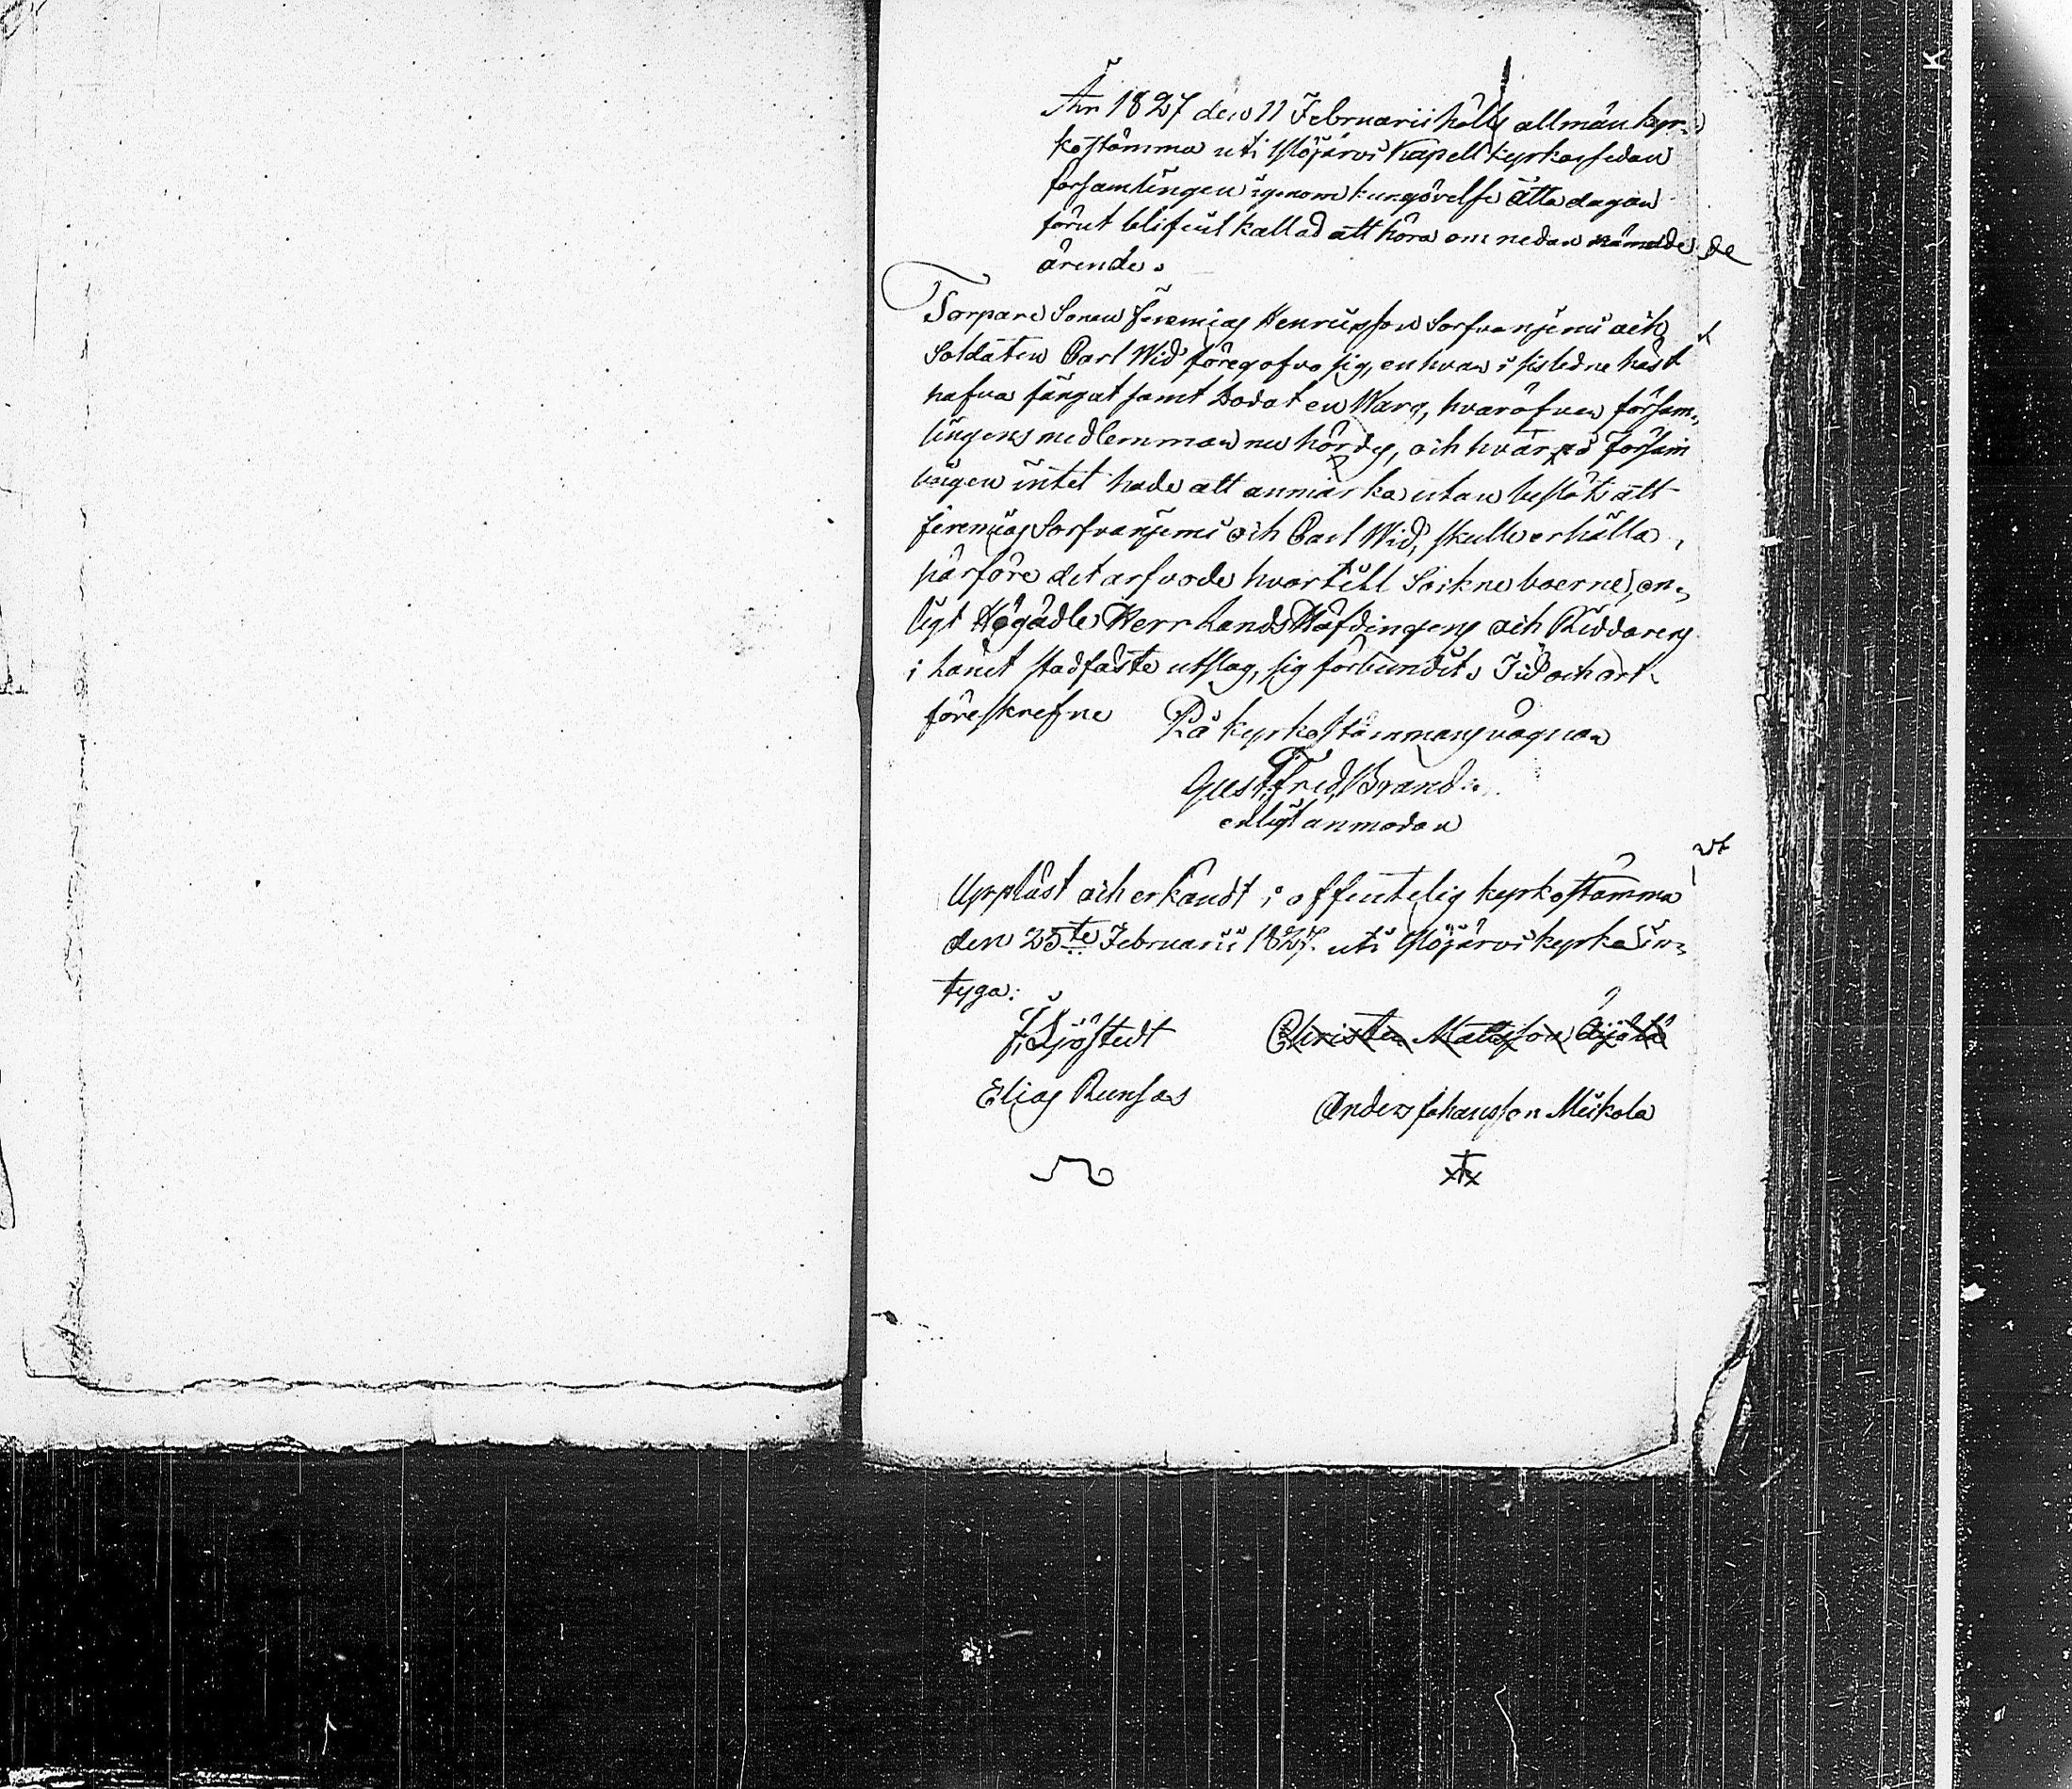 År 1827 den 11 Februarii hölls allmän kyr-
kostämma uti Ylöjärvi Kapell kyrka, sedan
församlingen igenom kungörelse åtta dagar
förut blifvit kallad att höra om nedan nämde
ärende.
Torpare Sonen Jeremias Henricsson Sorfvaniemi och
Soldaten Carl Wid föregofvo sig, en hvar i sisledne höst
hafva fångat samt dödat en Warg, hvaröfver försam-
lingens medlemmar nu hördes, och hvarpå försam
lingen intet hade att anmärka utan beslöts att
Jeremias Sorfvaniemi och Carl Wid, skulle erhålla,
härföre det arfvode hvartill Sockneboerne, en-
ligt Högädle Herr Lands Höfdingens och Riddarens
i länet stadfäste utslag, sig förbundit. Tid och ort
föreskrefne
På kyrkostämmans vägnar
Gust. Fred. Brand:
enligt anmodan
Uppläst och erkändt i offentelig kyrkostämma
den 25te Februarii 1827. uti Ylöjärvi kyrka in-
tyga:
J. Sjöstedt Christer Mattsson Äijälä
Elias Runsas Anders Johansson Mikola